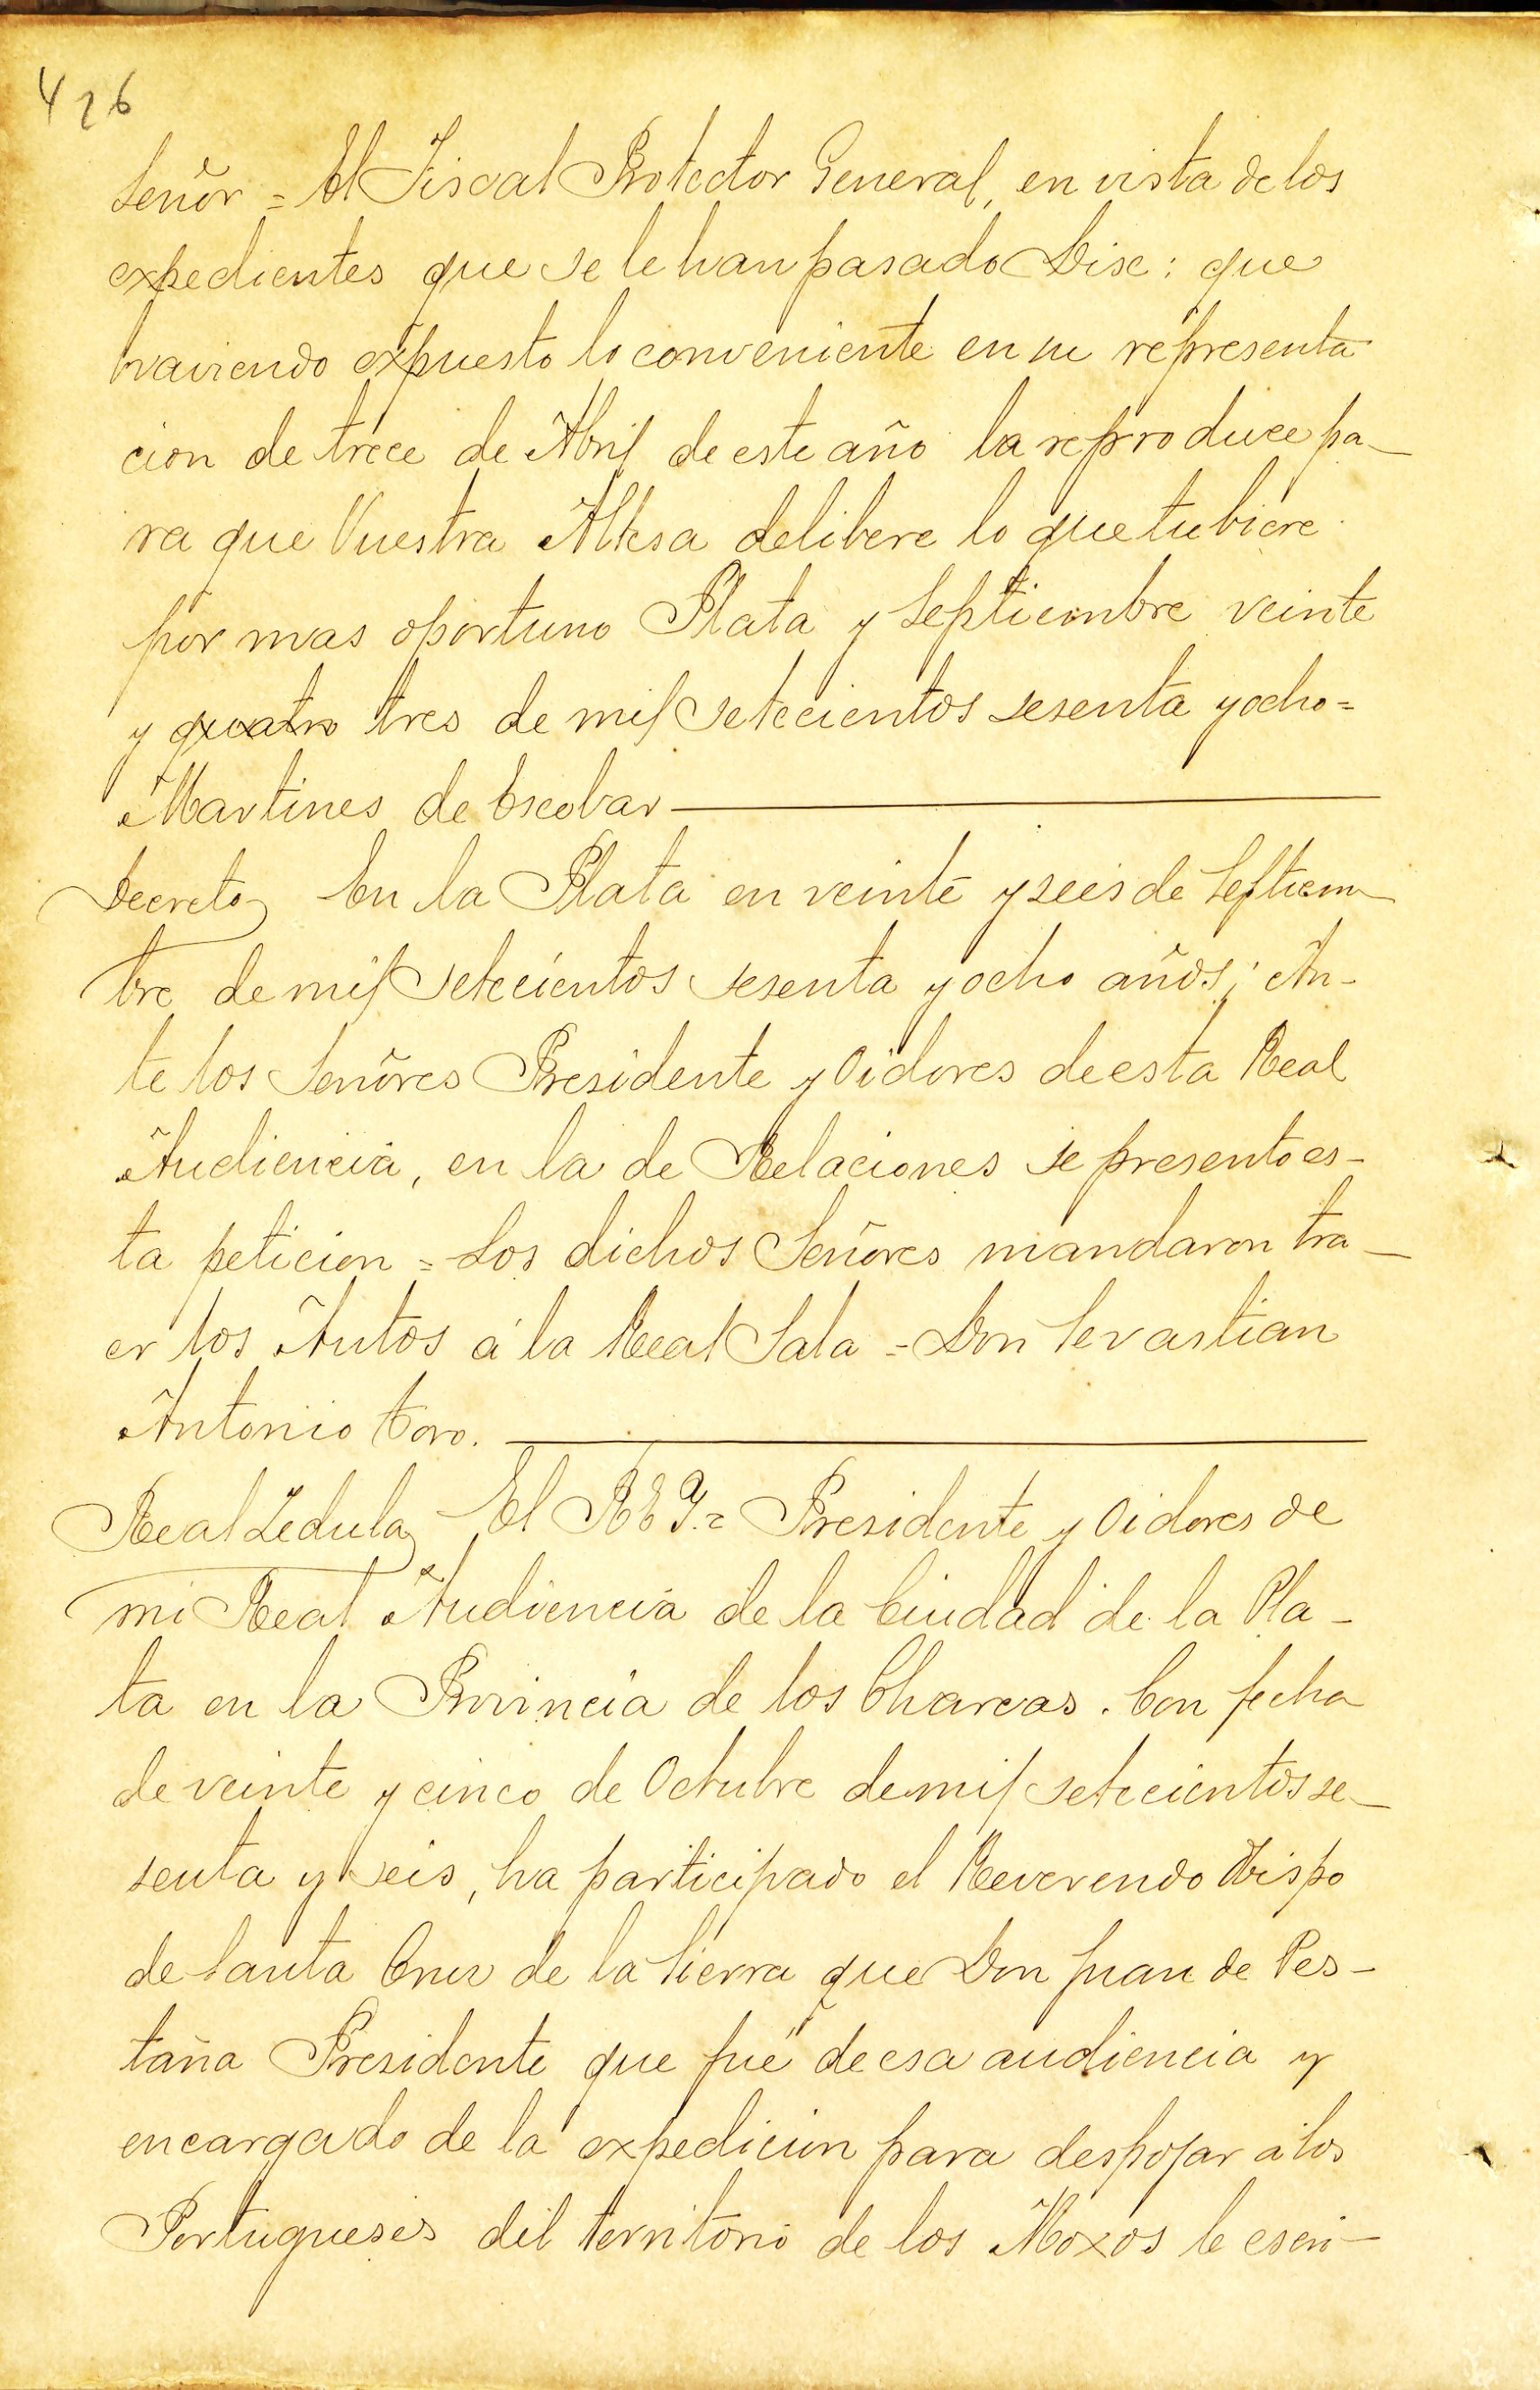 426
Señor = El Fiscal Protector General, en vista de los
expedientes que se le han pasado Dise: que
haviendo expuesto lo conveniente en su representa
cion de trece de Abril de este año la reproduce pa-
ra que Vuestra Altesa delibere lo que tubiere
por mas oportuno Plata y Septiembre veinte
y quatro tres de mil setecientos sesenta y ocho =
Martines de Escobar
Decreto En la Plata en veinte y seis de Septiem
bre de mil setecientos sesenta y ocho años; An-
te los Señores Presidente y Oidores de esta Real
Audiencia, en la de Relaciones se presento es-
ta peticion = Los dichos Señores mandaron tra-
er los Autos á la Real Sala = Don Sevastian
Antonio Toro.
Real Zedula El REY. = Presidente y Oidores de
mi Real Audiencia de la Ciudad de la Pla-
ta en la Provincia de los Charcas. Con fecha
de veinte y cinco de Octubre de mil setecientos se-
senta y seis, ha participado el Reverendo Obispo
de Santa Cruz de la Sierra que Don Juan de Pes-
taña Presidente que fué de esa audiencia y
encargado de la expedicion para despojar á los
Portugueses del territorio de los Moxos le escri-